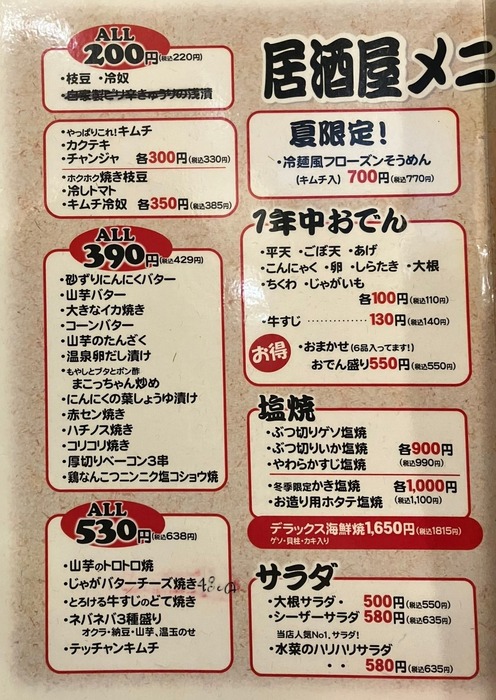 ALL
200円(税込220円)
・枝豆 ・冷奴
・自家製ピリ辛きゅうりの浅漬
・やっぱりこれ!キムチ
・カクテキ
・チャンジャ 各300円(税込330円)
・ホクホク焼き枝豆
・冷しトマト
・キムチ冷奴 各350円(税込385円)
ALL
390円(税込429円)
・砂ずりにんにくバター
・山芋バター
・大きなイカ焼き
・コーンバター
・山芋のたんざく
・温泉卵だし漬け
・もやしとブタとポン酢
まこっちゃん炒め
・にんにくの葉しょうゆ漬け
・赤セン焼き
・ハチノス焼き
・コリコリ焼き
・厚切りベーコン3串
・鶏なんこつニンニク塩コショウ焼
ALL
530円(税込638円)
・山芋のトロトロ焼
・じゃがバターチーズ焼き
・とろける牛すじのどて焼き
・ネバネバ3種盛り
オクラ・納豆・山芋、温玉のせ
・テッチャンキムチ
居酒屋メニ
夏限定!
・冷麺風フローズンそうめん
(キムチ入) 700円(税込770円)
1年中おでん
・平天 ・ごぼ天 ・あげ
・こんにゃく ・卵 ・しらたき ・大根
・ちくわ ・じゃがいも
各100円(税込110円)
・牛すじ …………… 130円(税込140円)
お得
・おまかせ(6品入ってます!)
おでん盛り550円(税込550円)
塩焼
・ぶつ切りゲソ塩焼
・ぶつ切りいか塩焼 各900円
・やわらかすじ塩焼 (税込990円)
・冬季限定かき塩焼 各1,000円
・お造り用ホタテ塩焼 (税込1,100円)
デラックス海鮮焼1,650円(税込1815円)
ゲソ・貝柱・カキ入り
サラダ
・大根サラダ・ 500円(税込550円)
・シーザーサラダ 580円(税込635円)
当店人気No.1、サラダ!
・水菜のハリハリサラダ
・・ 580円(税込635円)